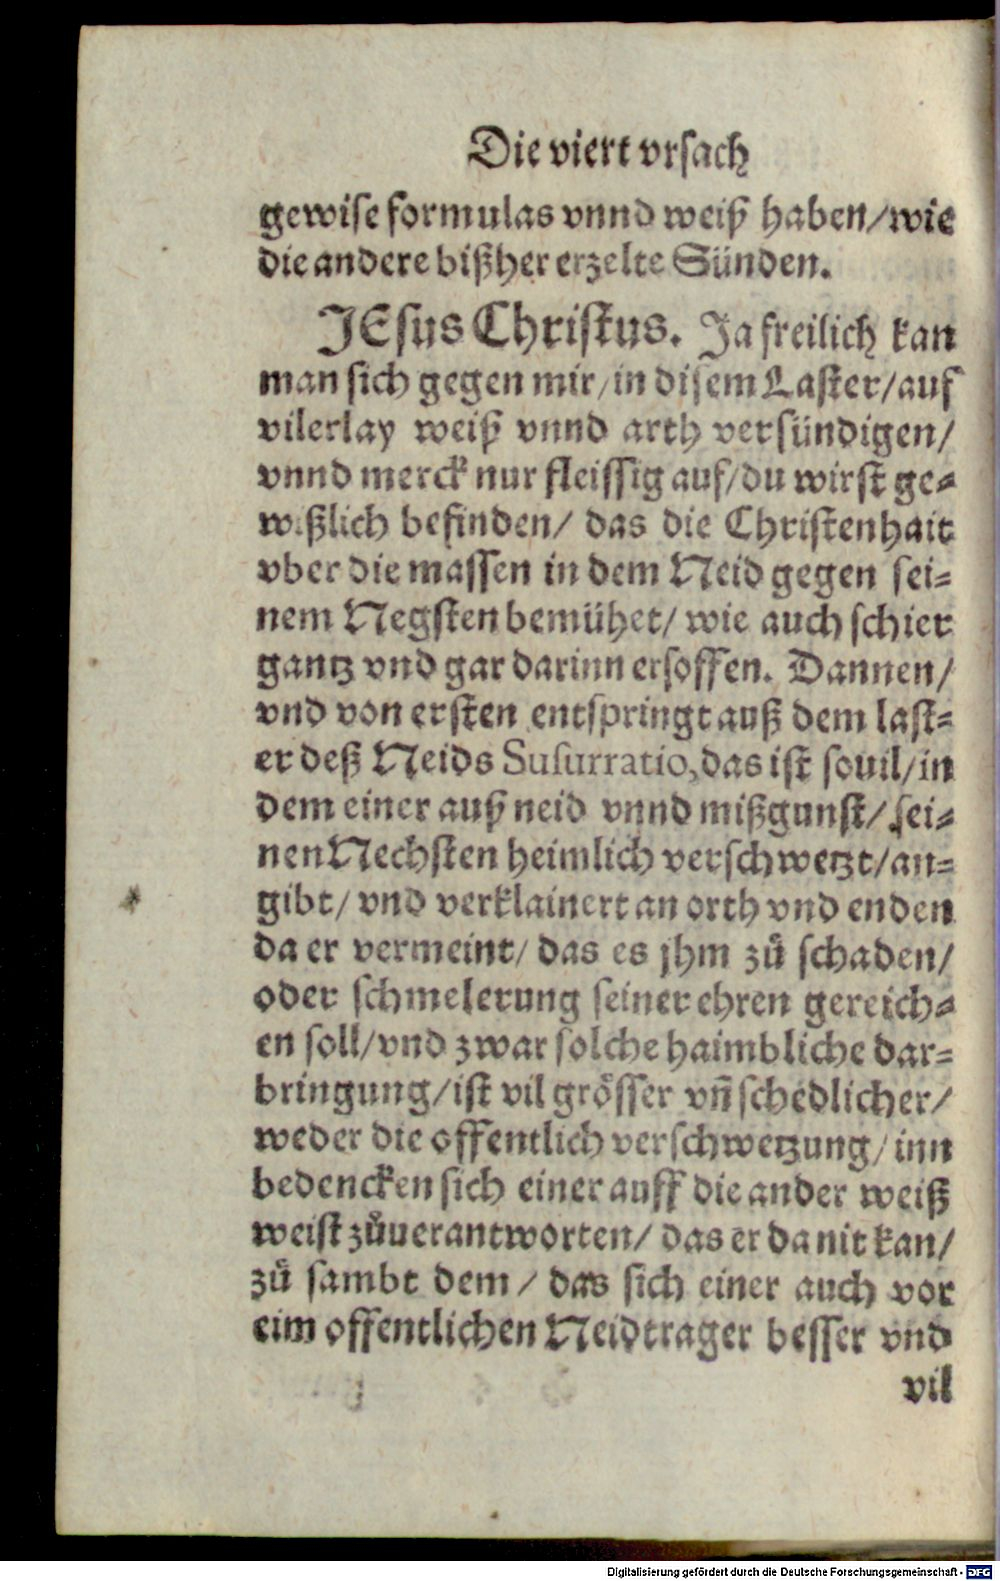 Die viert vrsach
gewise formulas vnnd weiß haben/wie
die andere bißher erzelte Sünden.
JEsus Christus. Ja freilich kan
man sich gegen mir/in disem Laster/auf
vilerlay weiß vnnd arth versündigen/
vnnd merck nur fleissig auf/du wirst ge-
wißlich befinden/ das die Christenhait
vber die massen in dem Neid gegen sei-
nem Negsten bemühet/ wie auch schier
gantz vnd gar darinn ersoffen. Dannen/
vnd von ersten entspringt auß dem last-
er deß Neids Susurratio, das ist souil/in
dem einer auß neid vnnd mißgunst/ sei-
nen Nechsten heimlich verschwetzt/an-
gibt/ vnd verklainert an orth vnd enden
da er vermeint/ das es jhm zů schaden/
oder schmelerung seiner ehren gereich-
en soll/vnd zwar solche haimbliche dar-
bringung/ist vil grösser vñ schedlicher/
weder die offentlich verschwetzung/ inn
bedencken sich einer auff die ander weiß
weist zůuerantworten/ das er da nit kan/
zů sambt dem / das sich einer auch vor
eim offentlichen Neidtrager besser vnd
vil
Digitalisierung gefördert durch die Deutsche Forschungsgemeinschaft - DFG